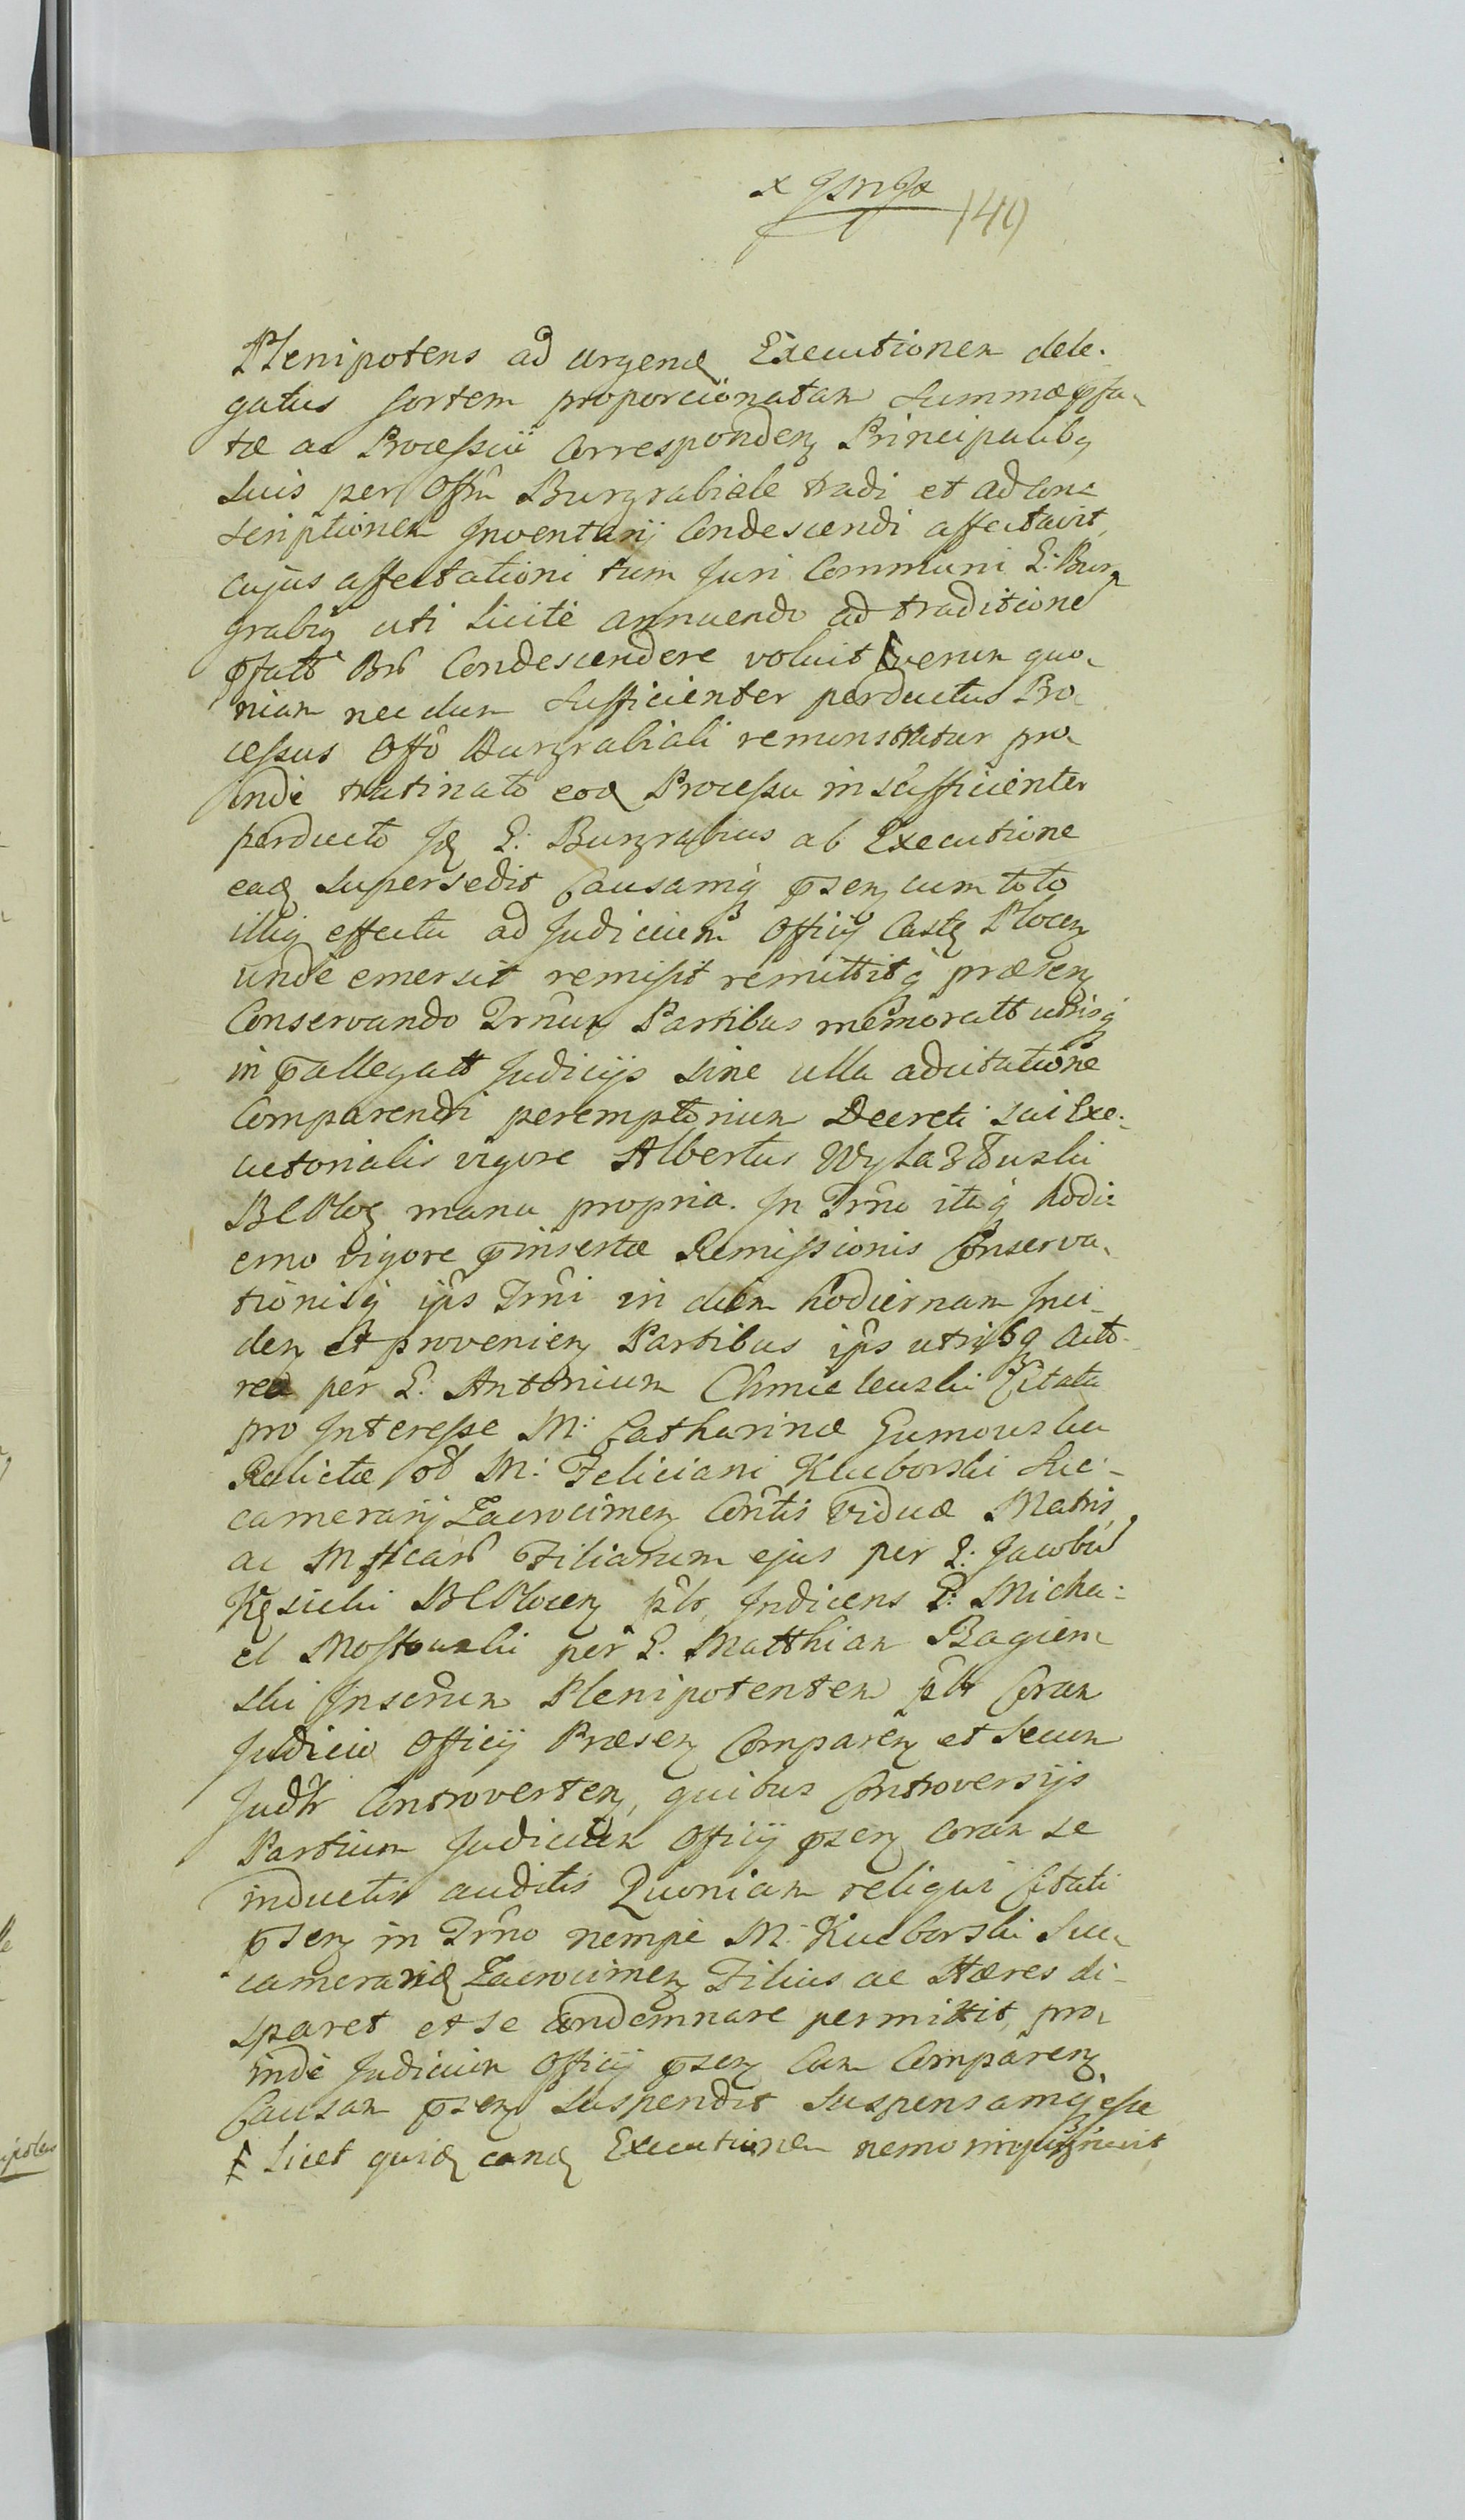 149
Plenipotens ad urgend Executionem dele-
gatus sortem proporcionatam Summæ pfa-
tæ ac Processui Correspondeñ Principalibq
suis per Offm Burgrabiale tradi et ad con-
scriptionem Inventarij Condescendi affectavit,
cujus affectationi tum Juri Communi G: Bur-
grabiq uti licitè annuendo ad traditione
pfatt Brr Condescendere voluit verum quo-
niam nec dum Sufficienter perductus Pro-
cessus Offo Burgrabiali remonstratur pro-
inde trutinato eod Processu insufficienter
perducto Id G: Burgrabius ab Executione
ead supersedit Causamq psen cum toto
illiq effectu ad Judicium Officij Castr Plocen
unde emersit remisit remittitq præsen
Conservando Trnum Partibus memoratt utrisq
in pallegatt Judicijs sine ulla adcitatione
Comparendi peremptorium Decreti sui Exe-
cutorialis vigore Albertus
BCPloc manu propria. In Trno itaq hodi-
erno vigore pinsertæ Remissionis Conserva-
tionisq ips Trni in diem hodiernam Inci-
den et provenien Partibus ips utrisq Acto-
rea per G: Antonium Chmielewski Citata
pro Interesse M: Catharinæ Gumowska
Relictæ M: Feliciani Kluborski Suc-
camerarij Zacrocimen Contis viduæ Matris,
ac Mficarr Filiarum ejus per G: Jacobum
BCPlocen plr, Indicens G: Micha-
el Mostowski per G: Matthiam Bagien-
ski Inscrum Plenipotentem plr Coram
Judicio Officij Præsen Comparen et secum
Judlr Controverten, quibus Controversijs
Partium Judicium Officij psen coram se
inductis auditis Quoniam reliqui Citati
psen in Trno nempe M: Kluborski Suc-
camerarid Zacrocimen Filius ac Hæres di-
sparet et se condemnare permittit, pro-
inde Judicium Officij psen Cum Comparen
Causam psen suspendit suspensamq esse
Licet quid eand Executionem nemo